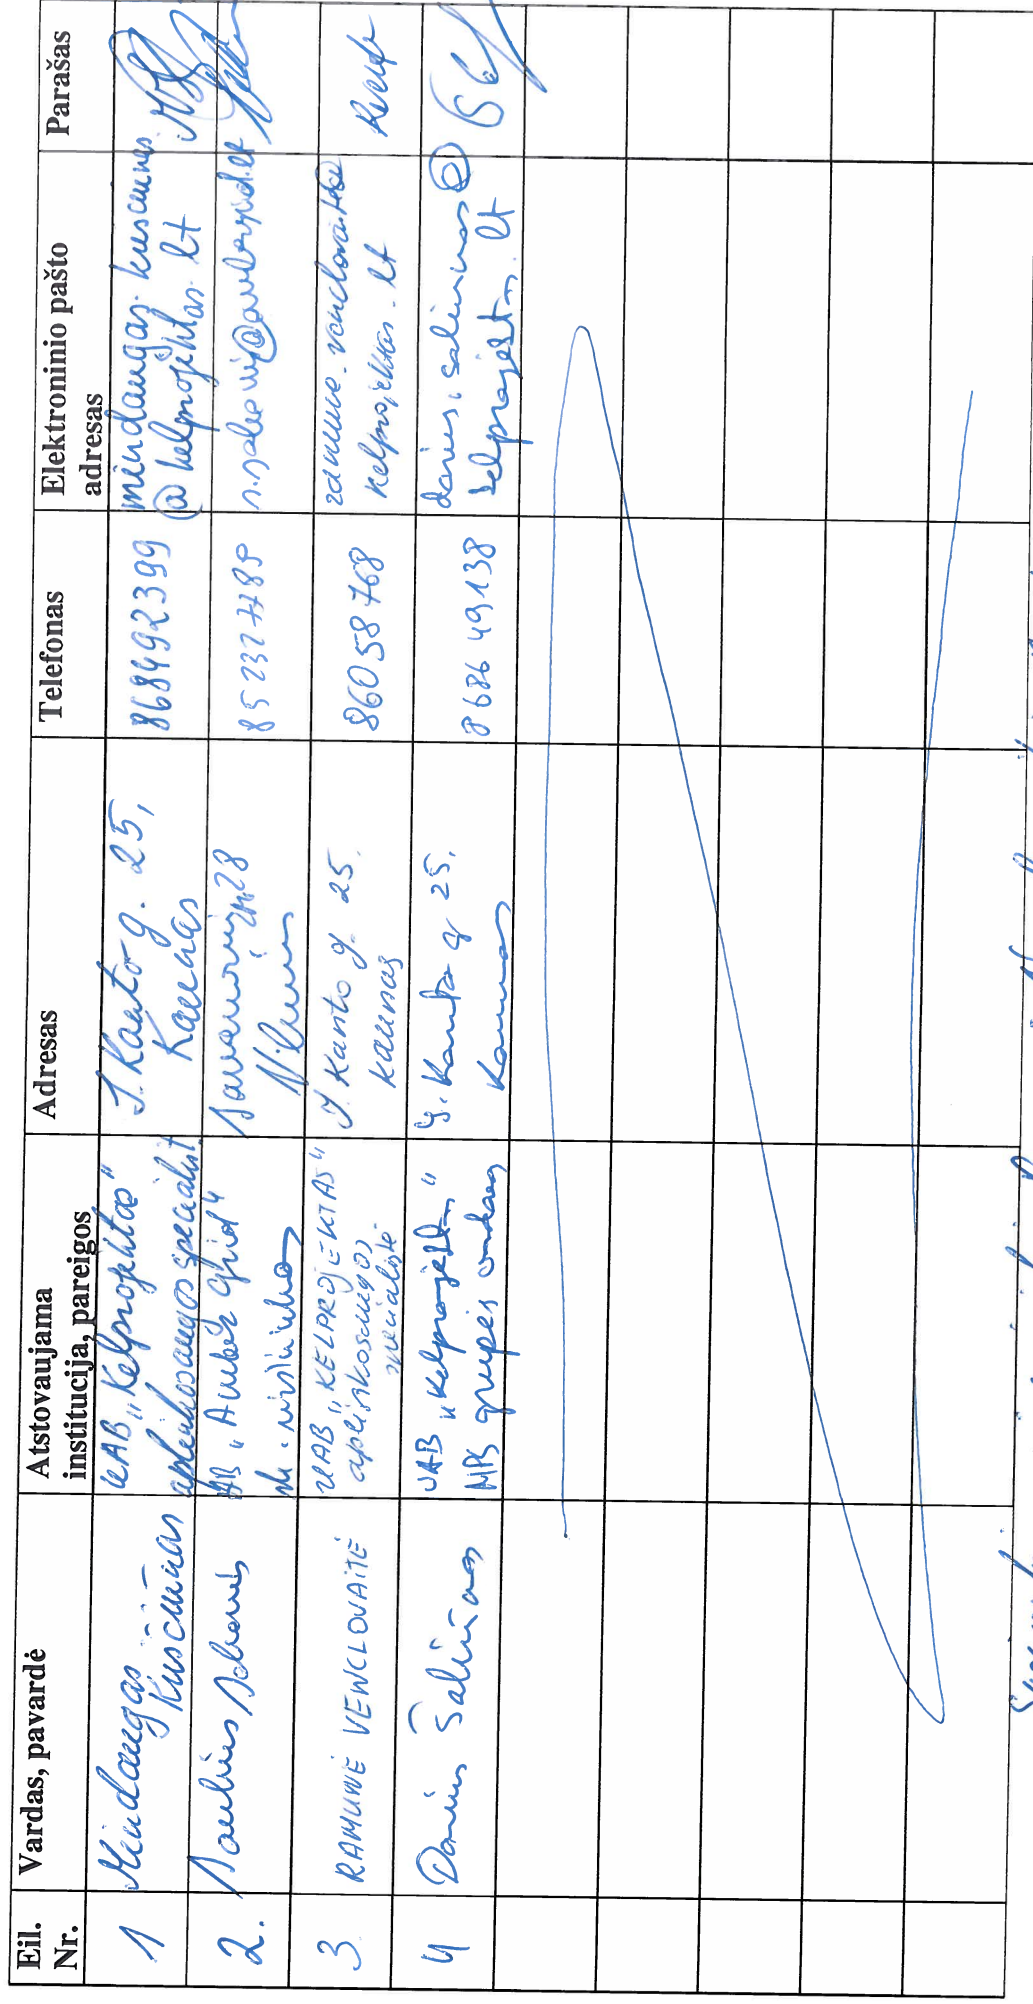 Eil. Nr. Vardas, pavardė Atstovaujama institucija, pareigos Adresas Telefonas Elektroninio pašto adresas Parašas
1 Mindaugas Kusciūnas UAB „Kelprojektas" aplinkosaugos specialist J. Kanto g. 25, Kaunas 868492399 mindaugas.kusciunas@kelprojektas.lt
2. Saulius AB „Amber Grid" Savanorių 28 Vilnius 852327789
3 RAMUNĖ VENCLOVAITĖ UAB „KELPROJEKTAS" aplinkosaugos specialistė J. Kanto g. 25. Kaunas 860558768 ramune.venclovaite@kelprojektas.lt
4 Darius Šaliūnas UAB „Kelprojektas" grupės vadovas J. Kanto g 25, Kaunas 8686 49138 darius.saliunas@kelprojektas.lt